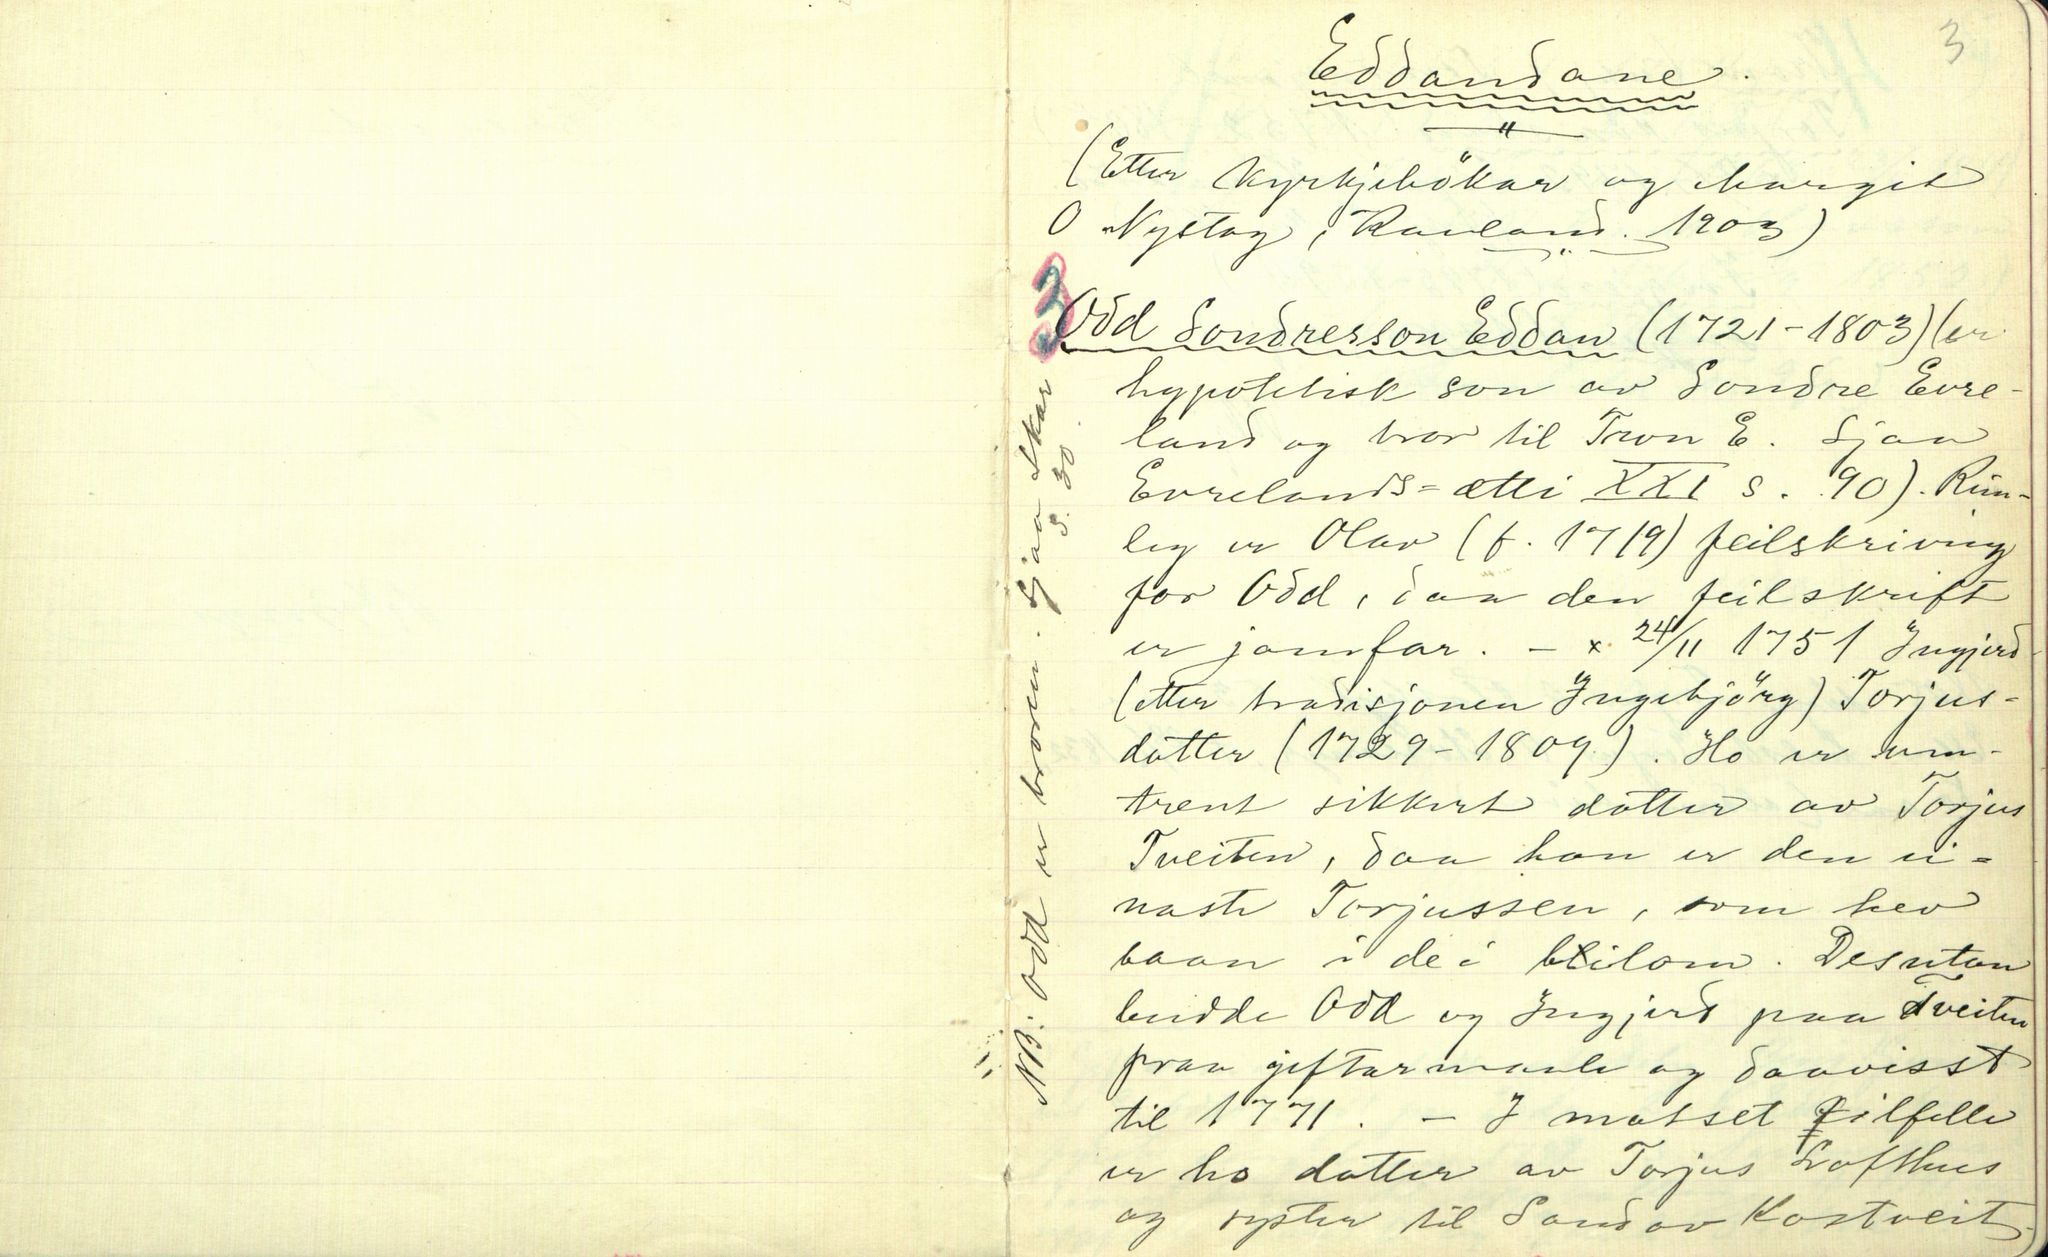 3
Eddandane.
(Etter kyrkjebökar og Margit
O Nystog, Rauland. 1903)
3
Odd Sondresson Eddan (1721-1803) (er
hypotetisk son av Sondre Evre-
land og bror til Tron E. Sjaa
Evrelands=ætti XXI s. 90). Rim-
leg er Olav (f. 1719) feilskriving
for Odd, daa den feilskrift
er jamfar. - x 24/11 1751 Ingjerd
(etter tradisjonen Ingebjörg) Torjus-
dotter (1729-1809). Ho er um-
trent sikkert dotter av Torjus
Tveiten, daa han er den ei=
naste Torjussen, som hev
baan i dei bilom. Desutan
budde Odd og Ingjerd paa Tveiten
fraa giftarmaale og daavisst
til 1771. - I motset tilfelle
er ho dotter av Torjus Lofthus
og syster til Sondov Kostveit
NB: Odd er broren. Sjaa Skar
S. 30.